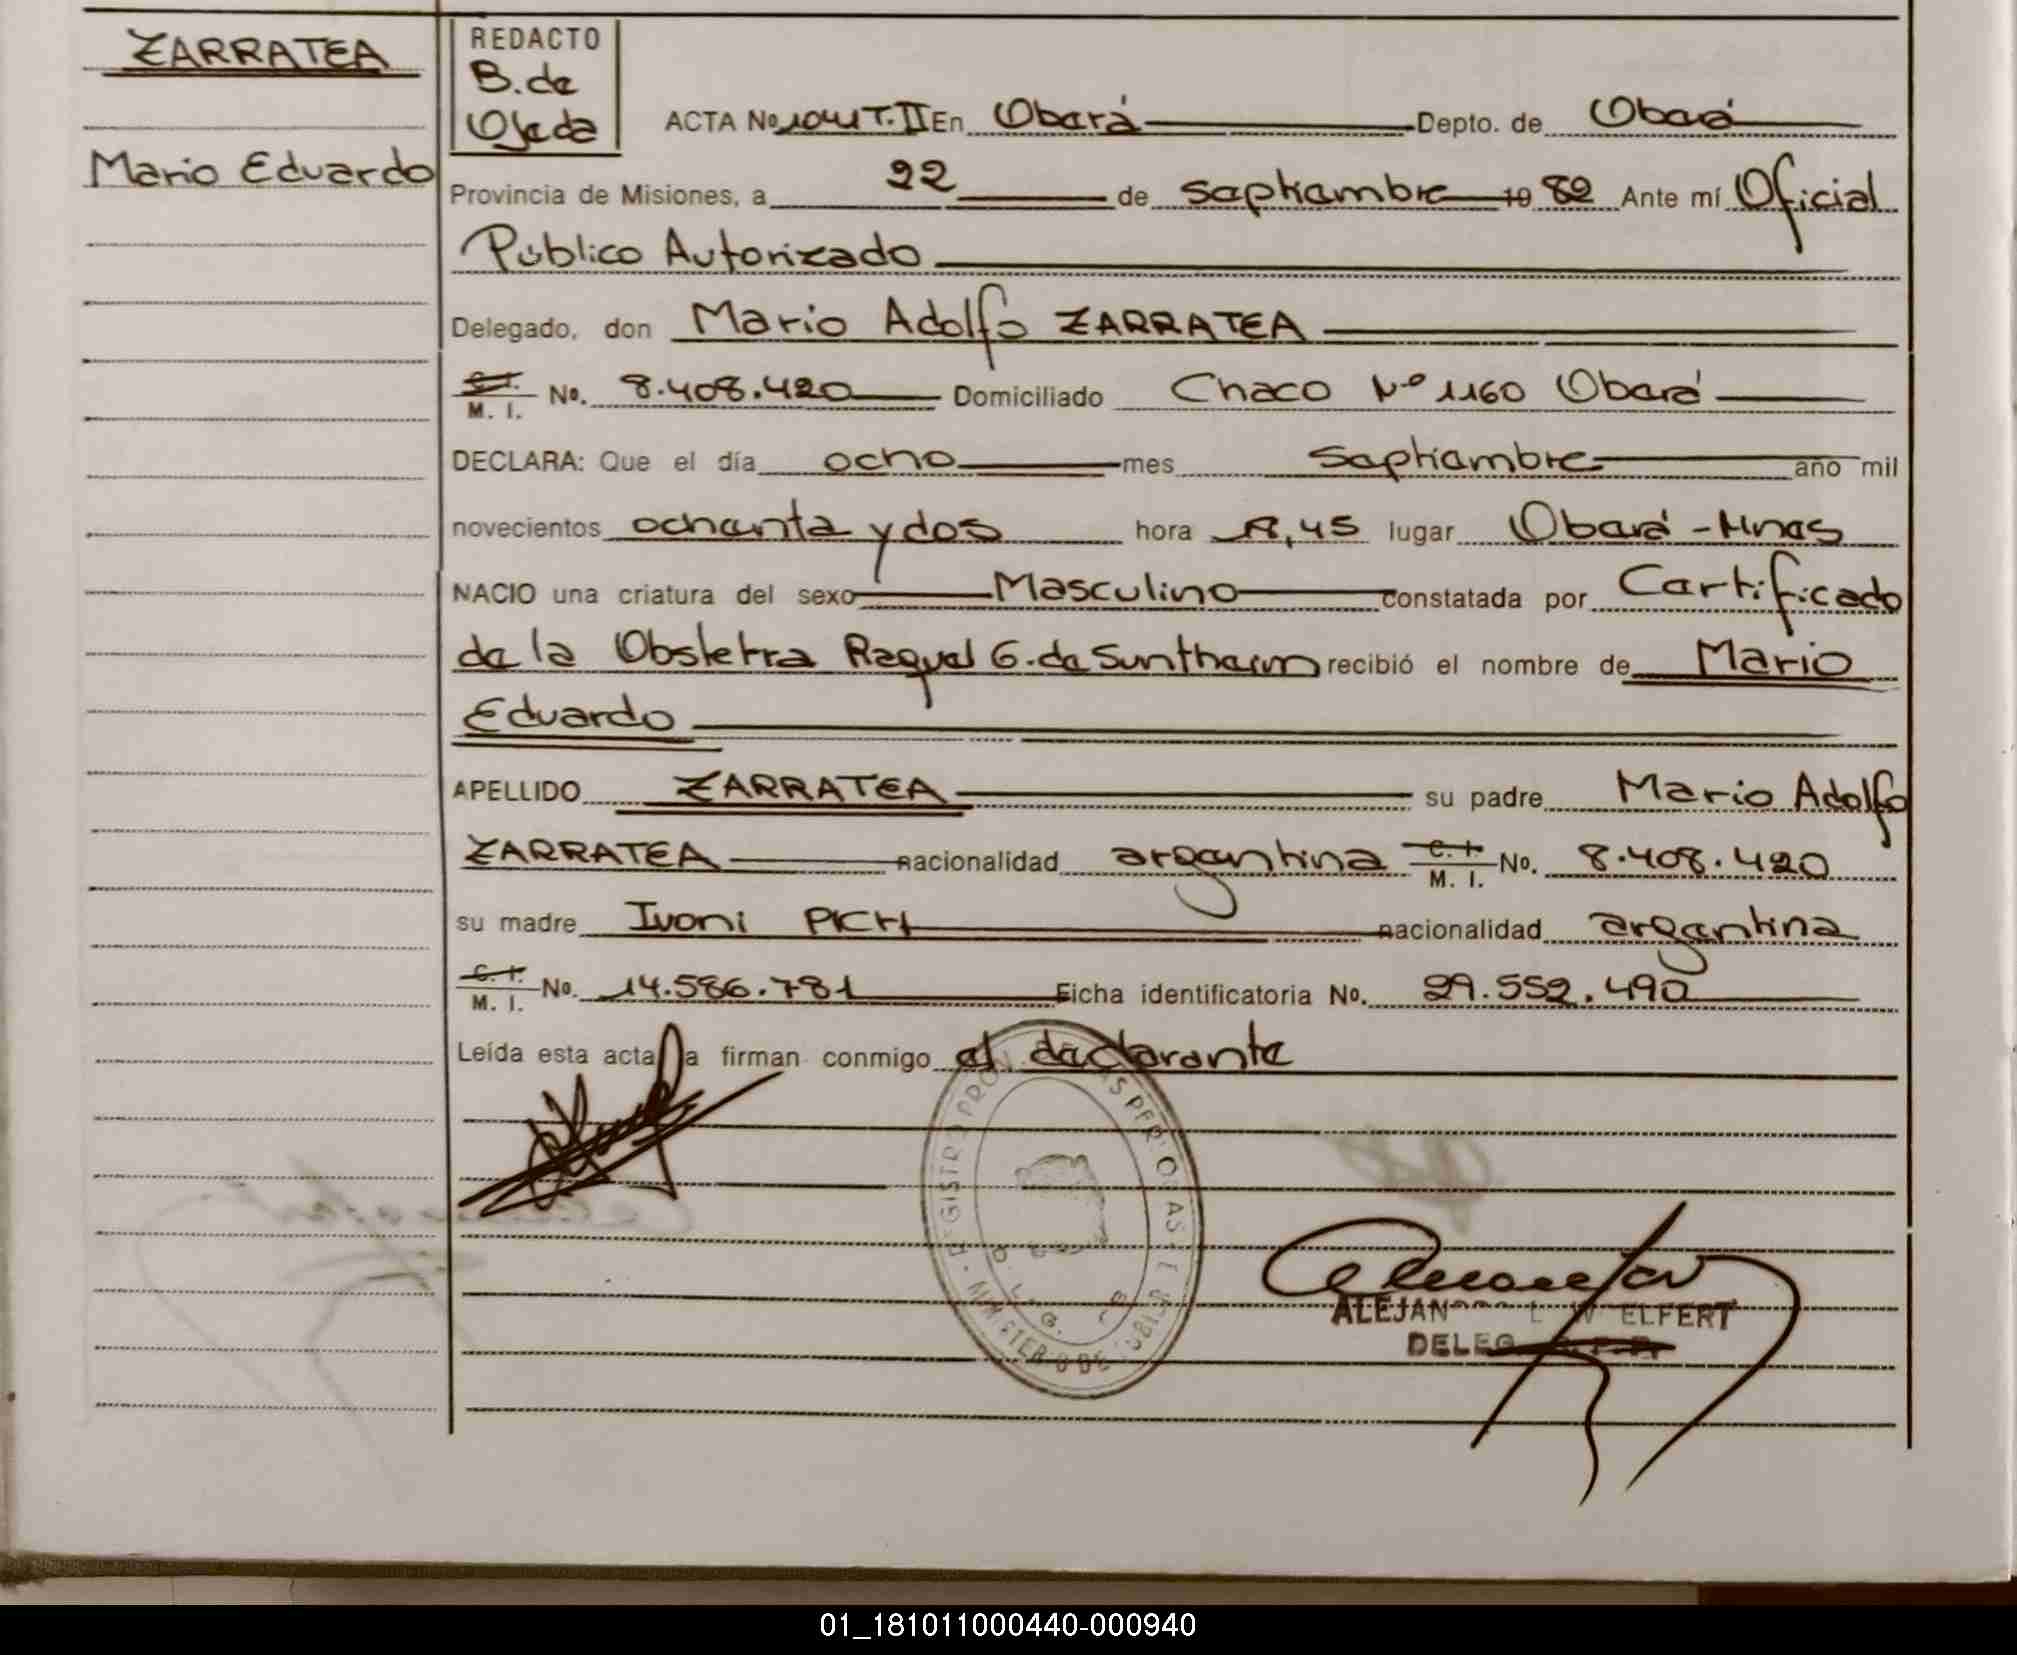 ZARRATEA
Mario Eduardo
REDACTO
B. de
Ojeda
ACTA No 1041 T. II En Oberá Depto. de Oberá
Provincia de Misiones, a 22 de septiembre 19 82 Ante mí Oficial
Público Autorizado
Delegado, don Mario Adolfo ZARRATEA
C. I. M. I. No. 8.408.420 Domiciliado Chaco Nº 1160 Oberá
DECLARA: Que el día ocho mes septiembre año mil
novecientos ochenta y dos hora ,45 lugar Oberá - Mnes
NACIO una criatura del sexo Masculino constatada por Certificado
de la Obstetra Raquel G. de Suntheim recibió el nombre de Mario
Eduardo
APELLIDO ZARRATEA su padre Mario Adolfo
ZARRATEA nacionalidad argentina C. I. M. I. No. 8.408.420
su madre Ivoni PICH nacionalidad argentina
C. I. M. I. No. 14.586.781 Ficha identificatoria No. 29.552.490
Leída esta acta la firman conmigo el declarante
REGISTRO PROV. DE LAS PERSONAS
ALEJANDRO L. W ELFERT
DELEG. R.P.P.
01_181011000440-000940